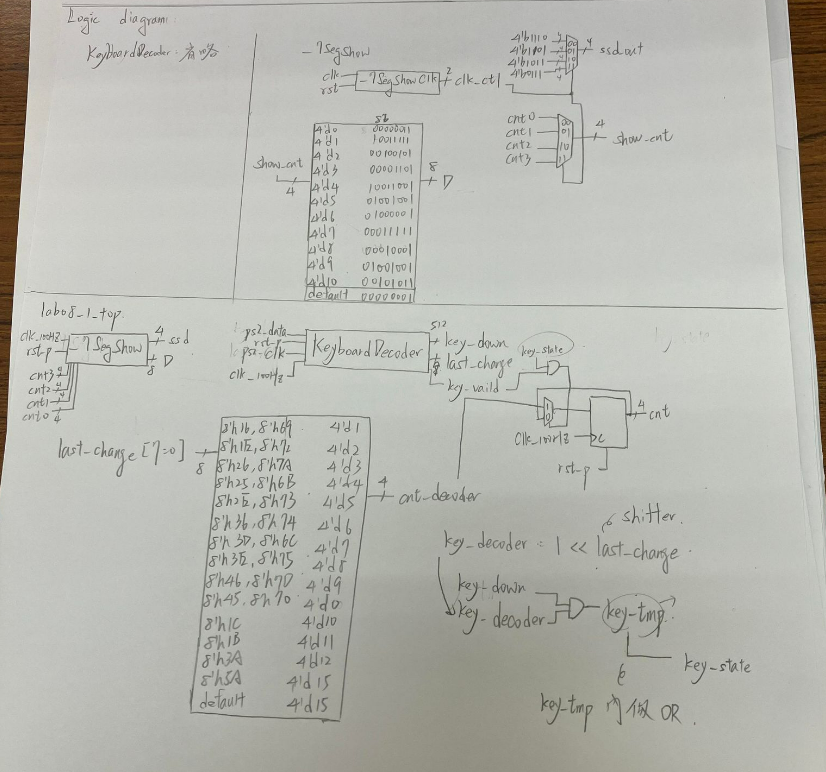 Logic diagram:
KeyboardDecoder. 省略
-7SegShow
clk
rst
-7SegShowClk
2
clk_ctl
4'b1110
4'b1101
4'b1011
4'b0111
4
4
4
4
00
01
10
11
4
ssd out
cnt0
cnt1
cnt2
cnt3
00
01
10
11
4
show_cnt
show_cnt
4
4'd0 0000011
4'd1 1001111
4'd2 00100101
4'd3 00001101
4'd4 10011001
4'd5 01001001
4'd6 01000001
4'd7 00011111
4'd8 00010001
4'd9 01001001
4'd10 00101011
default 00000001
8
D
lab08_1_top.
clk_100HZ
rst-p
cnt3
cnt2
cnt1
cnt0
4
4
4
4
-7SegShow
4
ssd
8
D
ps2_data
rst-p
ps2-clk
clk_100HZ
KeyboardDecoder
512
key-down
last_change
key-vaild
key-state
1
0
clk_100HZ
C
rst-p
4
cnt
last_change [7=0]
8
8'h16, 8'h69 4'd1
8'h1E, 8'h72 4'd2
8'h26, 8'h7A 4'd3
8'h25, 8'h6B 4'd4
8'h2E, 8'h73 4'd5
8'h36, 8'h74 4'd6
8'h3D, 8'h6C 4'd7
8'h3E, 8'h75 4'd8
8'h46, 8'h7D 4'd9
8'h45, 8'h70 4'd0
8'h1C 4'd10
8'h1B 4'd11
8'h3A 4'd12
8'h5A 4'd15
default 4'd15
4
cnt-decoder
shifter.
key_decoder = 1 << last_change.
key-down
key-decoder
key-tmp
key-state
key-tmp 內做 OR.